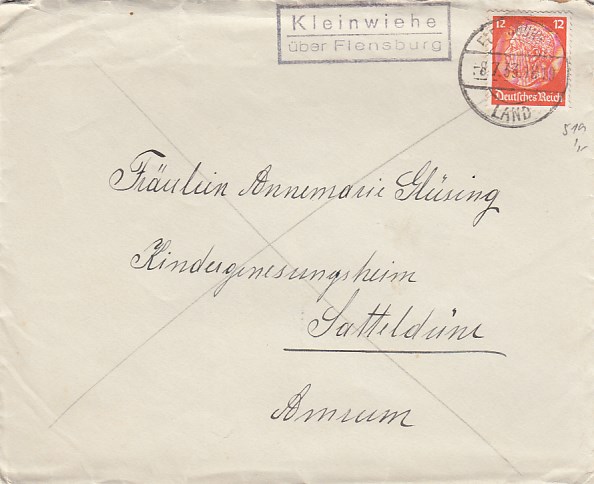 Kleinwiehe
über Flensburg
12 12
Deutsches Reich
LAND
Fräulein Annemarie Glüsing
Kindergenesungsheim
Satteldüne
Amrum